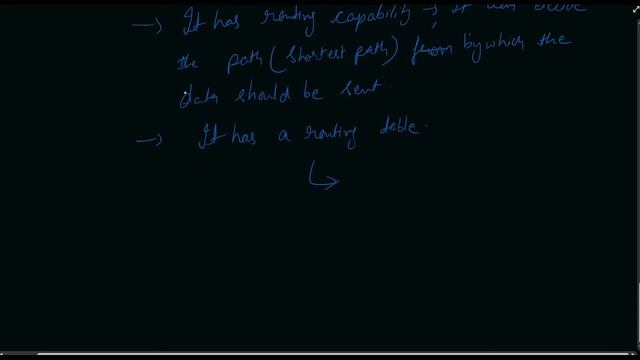 → It has routing capability → it can decide
the path (shortest path) from by which the
data should be sent.
→ It has a routing table.